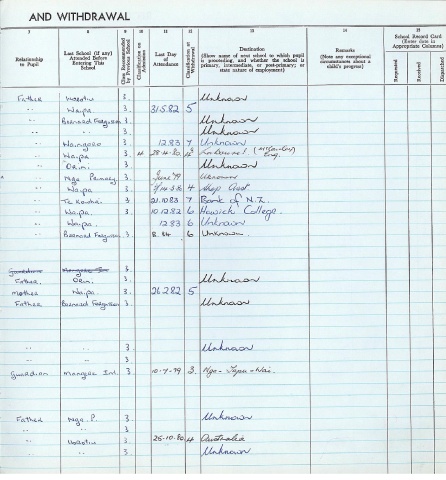 AND WITHDRAWAL
7 8 9 10 11 12 13 14 15
Relationship to Pupil
Last School (if any) Attended Before Entering This School
Class Recommended by Previous School
Classification on Admission
Last Day of Attendance
Classification at Withdrawal
Destination
(Show name of next school to which pupil is proceeding, and whether the school is primary, intermediate, or post-primary; or state nature of employment)
Remarks
(Note any exceptional circumstances about a child's progress)
School Record Card
(Enter dates in Appropriate Columns)
Requested
Received
Dispatched
Father Horotiu 3. Unknown
" Waipa 3. 31.5.82 5
" Bernard Fergusson 3. Unknown
" " 3. Unknown
" Waingaro 3. 12.83 7 Unknown
" Waipa 3. 4 28.4.80
" Orini 3. Unknown
" Nga Primary 3. June '79 Unknown
" Waipa 3. 4 Shop Asst
" Te Kauwhai 3 21.10.83 7 Bank of N.Z.
" Waipa. 3. 10.12.82 6 Howick College.
" 3. 12.83 6 Unknown
" Bernard Ferguson 3. 8.84 6 Unknown.
Guardian 3.
Father. Orini. 3. Unknown
Mother Waipa. 3 26.2.82 5
Father Bernard Ferguson 3 Unknown
" " 3 Unknown
" 3
Guardian Mangere Int. 3 10-7-79 3.
Father Nga. P. 3 Unknown
" " 3
" Horotiu 3 25-10-80 4 Australia
" " 3. Unknown